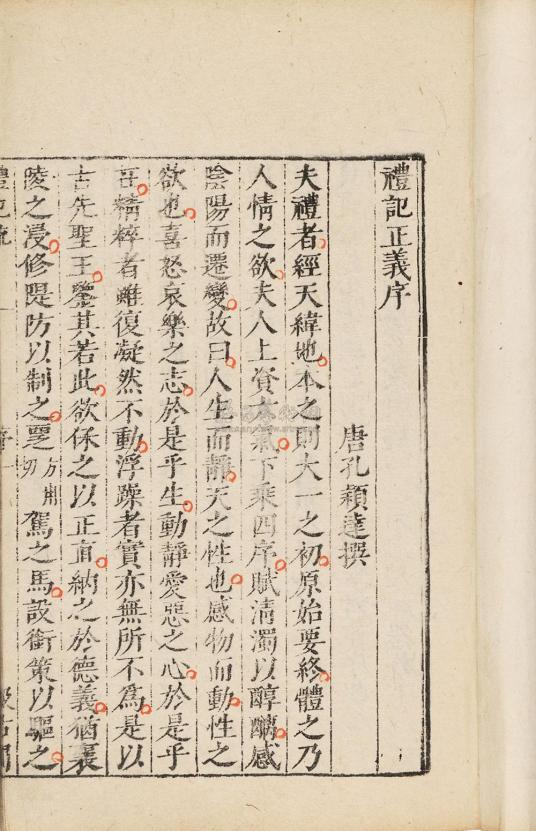 禮記正義序
唐孔穎達撰
夫禮者經天緯地本之則大一之初原始要終體之乃
人情之欲夫人上資六氣下乘四序賦清濁以醇醨感
陰陽而遷變故曰人生而靜天之性也感物而動性之
欲也喜怒哀樂之志於是乎生動靜愛惡之心於是乎
在精粹者雖復凝然不動浮躁者實亦無所不為是以
古先聖王鑒其若此欲保之以正直納之於德義猶襄
陵之浸修隄防以制之覂方用切駕之馬設銜策以驅之